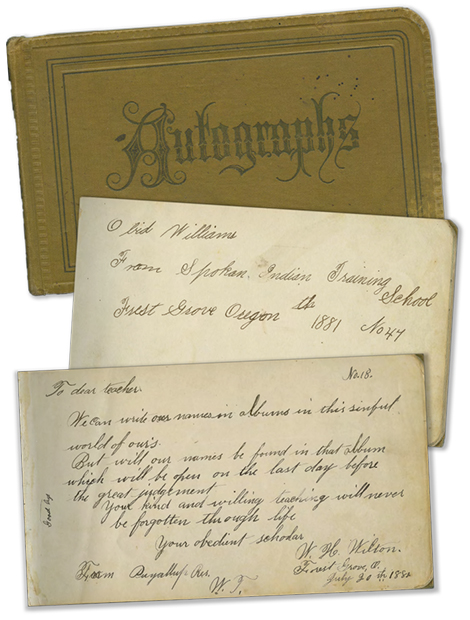 Autographs
Obid Williams
From Spokan. Indian Training
School
Forest Grove Oregon
1881 No 47
No. 18.
To dear teacher.
We can write our names in albums in this sinful
world of our's.
But will our names be found in that album
which will be open on the last day before
the great judgement
Your kind and willing teaching will never
be forgotten through life
Your obedient scholar
W. H. Wilson.
From Puyallup Res. Forest Grove, O.
W. T. July 20th, 1882
Good by